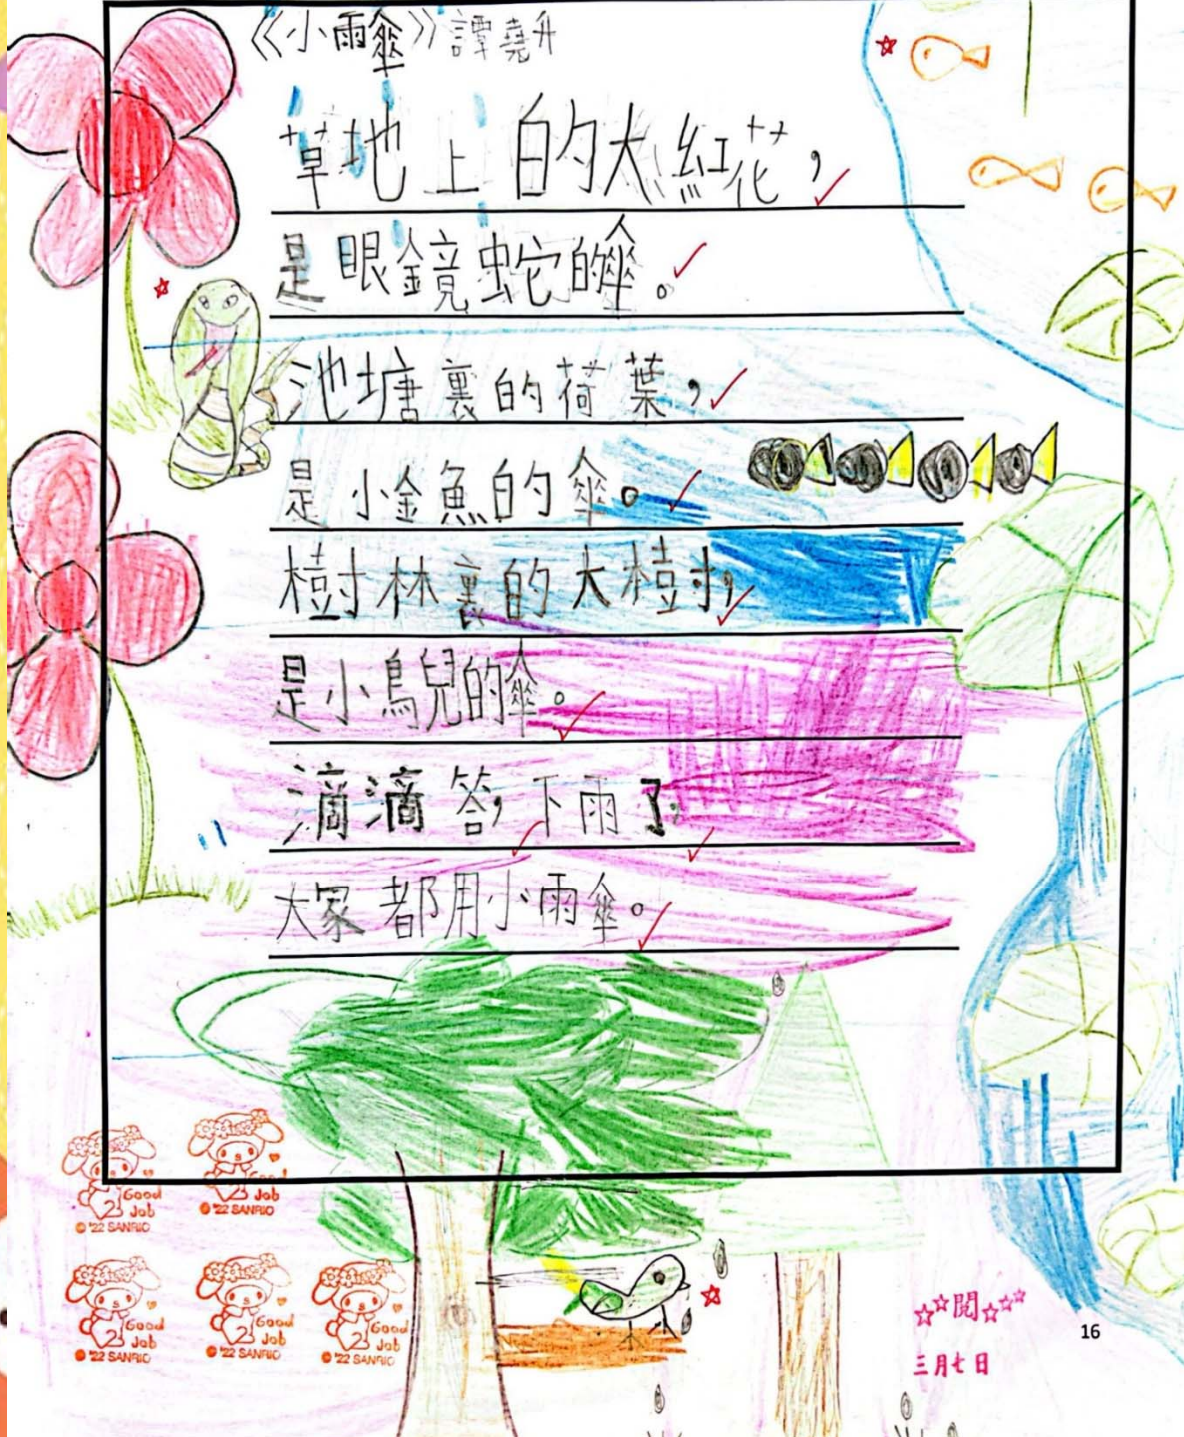 《小雨傘》譚堯升
草地上的大紅花，
是眼鏡蛇的傘。
池塘裏的荷葉，
是小金魚的傘。
樹林裏的大樹，
是小鳥兒的傘。
滴滴答，下雨了，
大家都用小雨傘。
Good Job
© '22 SANRIO
Good Job
© '22 SANRIO
Good Job
© '22 SANRIO
Good Job
© '22 SANRIO
Good Job
© '22 SANRIO
閱
三月七日
16